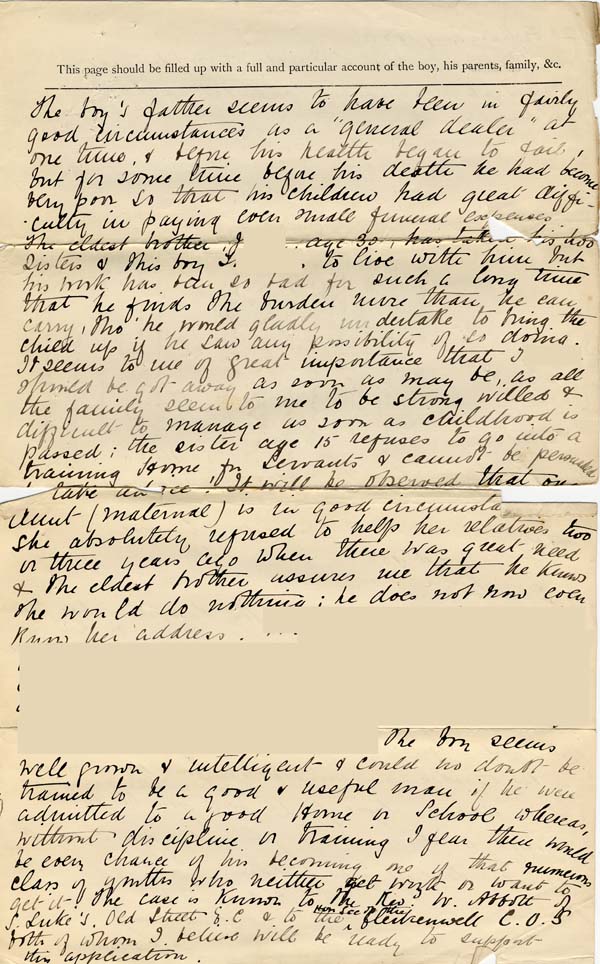 This page should be filled up with a full and particular account of the boy, his parents, family, &c.
The boy's father seems to have been in fairly
good circumstances as a "general dealer" at
one time, & before his health began to fail,
but for some time before his death he had become
very poor so that his children had great diffi-
culty in paying even small funeral expenses
The eldest brother, J age 30, has taken his two
sisters & this boy I. to live with him but
his work has been so bad for such a long time
that he finds the burden more than he can
carry, tho' he would gladly undertake to bring the
child up if he saw any possibility of so doing.
It seems to me of great importance that I
should be got away as soon as may be, as all
the family seem to me to be strong willed &
difficult to manage as soon as childhood is
passed; the sister age 15 refuses to go into a
training Home for Servants & cannot be persuaded
take advice. It will be observed that one
Aunt (maternal) is in good circumsta
She absolutely refused to help her relatives two
or three years ago when there was great need
& the eldest brother assures me that he knows
she would do nothing; he does not now even
know her address. ...
The boy seems
well grown & intelligent & could no doubt be
trained to be a good & useful man if he were
admitted to a good Home or School whereas,
without discipline or training I fear there would
be every chance of his becoming one of that numerous
class of youths who neither get work or want to
get it. The case is known to The Rev. W. Abbott of
S. Luke's, Old Street E.C & to the Hon Sec of the Clerkenwell C.O.S
both of whom I believe will be ready to support
this application.